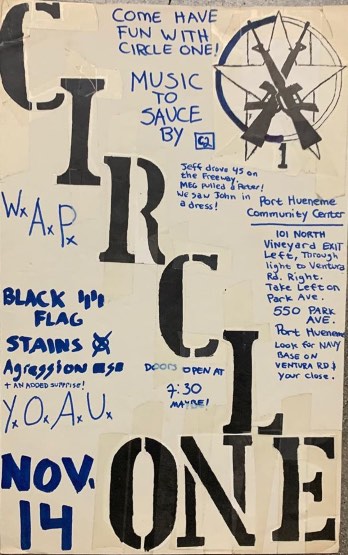 COME HAVE
FUN WITH
CIRCLE ONE!
MUSIC
TO
SAUCE
BY
1
CIRCLE
ONE
Jeff drove 45 on
the Freeway,
MEG pulled a Peter!
We saw John in
a dress!
Port Hueneme
Community Center
101 NORTH
Vineyard EXIT
Left, Through
light to Ventura
Rd. Right.
Take Left on
Park Ave.
550 PARK
AVE.
Port Hueneme
Look for NAVY
BASE ON
VENTURA RD &
your close.
W.A.P.
BLACK
FLAG
STAINS
Agression
+ AN ADDED SURPRISE!
Y.O.A.U.
DOORS OPEN AT
7:30
MAYBE!
NOV.
14